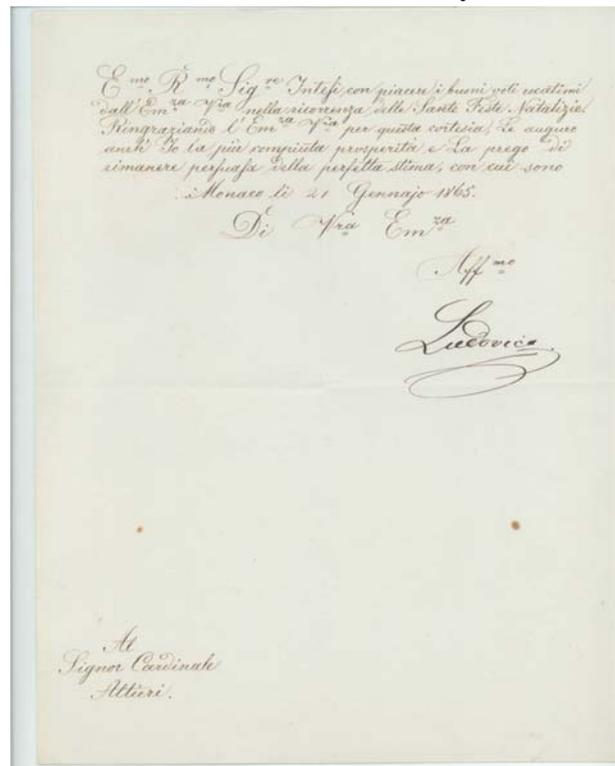 E.mo R.mo Sig.re Intesi con piacere i buoni voti recatimi
dall'Em.za V.ra nella ricorrenza delle Sante Feste Natalizie.
Ringraziando l'Em.za V.ra per questa cortesia, Le auguro
anch' Io la più compiuta prosperità e La prego di
rimanere persuasa della perfetta stima, con cui sono
Monaco li 21 Gennajo 1865.
Di Vra Em.za
Aff.mo
Ludovico.
Al
Signor Cardinale
Altieri.